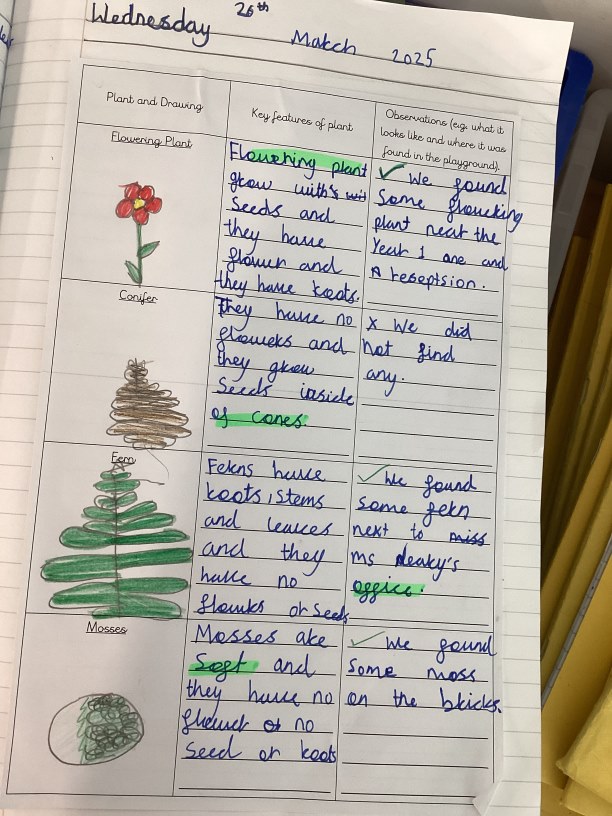 Wednesday 26th March 2025
Plant and Drawing
Key features of plant
Observations (e.g. what it
looks like and where it was
found in the playground).
Flowering Plant
Flowering plant
grow with
Seeds and
they have
flower and
they have roots.
We found
Some flowering
plant near the
Year 1 are and
A reseptsion.
Conifer
They have no
flowers and
they grow
Seeds inside
of cones.
x We did
not find
any.
Fern
Ferns have
roots, stems
and leaves
and they
have no
flowrs or seeds
We found
some fern
next to miss
ms Deaky's
office.
Mosses
Mosses are
Soft and
they have no
flower or no
seed or roots
We found
some moss
on the bricks.